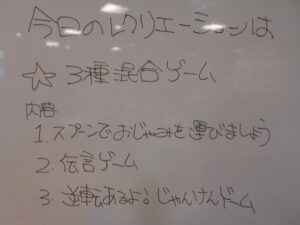 今日のレクリエーションは
☆3種混合ゲーム
内容
1. スプーンでおじゃみを運びましょう
2. 伝言ゲーム
3. 逆転あるよ!じゃんけんドーム